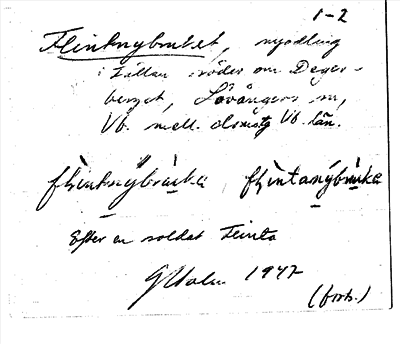 1-2
Flintnybruket, nyodling
i Fällan söder om Deger-
berget, Lövångers sn,
Vb. mell. domsg Vb. län.
flintnybruke flintanybruke
Efter en soldat Flinta
G Holm 1947
(forts.)